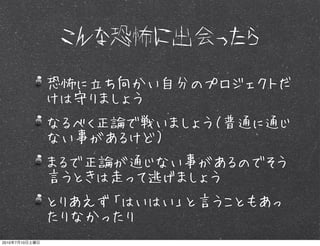 こんな恐怖に出会ったら
恐怖に立ち向かい自分のプロジェクトだ
けは守りましょう
なるべく正論で戦いましょう(普通に通じ
ない事があるけど)
まるで正論が通じない事があるのでそう
言うときは走って逃げましょう
とりあえず「はいはい」と言うこともあっ
たりなかったり
2010年7月10日土曜日